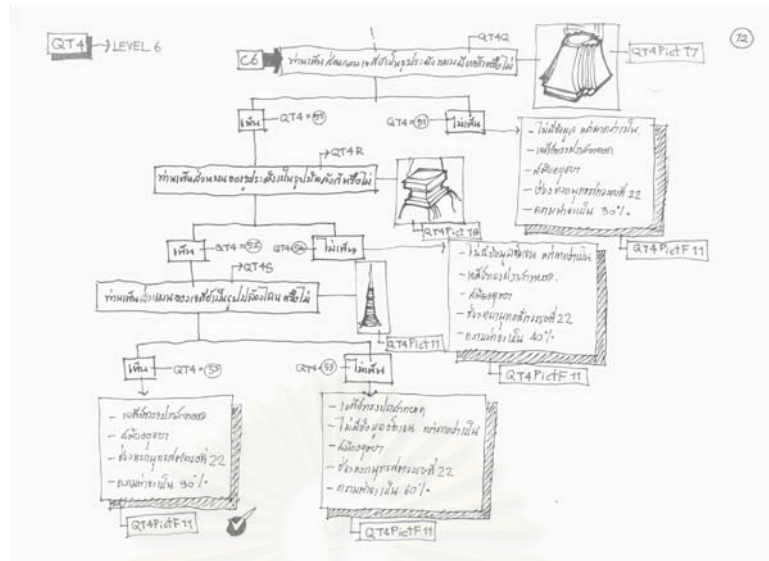 12
QT4 → LEVEL 6
QT4Q
C6
ท่านเห็นส่วนกลางเจดีย์เป็นรูประฆังแบบมีหลักหรือไม่
QT4Pict T7
เห็น
QT4=51
QT4=51
ไม่เห็น
- ไม่มีข้อมูล แต่คาดว่าเป็น
- เจดีย์ทรงปราสาทยอด
- สมัยอยุธยา
- ช่วงพระพุทธศตวรรษที่ 22
- ความน่าจะเป็น 30%
QT4PictF11
QT4R
ท่านเห็นส่วนบนของรูประฆังเป็นรูปบัลลังก์หรือไม่
QT4Pict T8
เห็น
QT4=52
QT4=52
ไม่เห็น
- ไม่มีข้อมูลชัดเจน แต่คาดว่าเป็น
- เจดีย์ทรงปราสาทยอด
- สมัยอยุธยา
- ช่วงพระพุทธศตวรรษที่ 22
- ความน่าจะเป็น 40%
QT4PictF11
QT4S
ท่านเห็นส่วนบนของเจดีย์เป็นรูปปล้องไฉนหรือไม่
QT4Pict11
เห็น
QT4=53
QT4=53
ไม่เห็น
- เจดีย์ทรงปราสาทยอด
- สมัยอยุธยา
- ช่วงพระพุทธศตวรรษที่ 22
- ความน่าจะเป็น 90%
QT4PictF11
- เจดีย์ทรงปราสาทยอด
- ไม่มีข้อมูลชัดเจน แต่คาดว่าเป็น
- สมัยอยุธยา
- ช่วงพระพุทธศตวรรษที่ 22
- ความน่าจะเป็น 60%
QT4PictF11